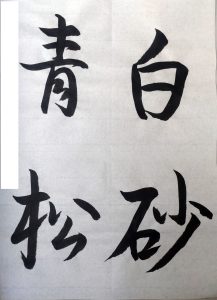 白砂
青松